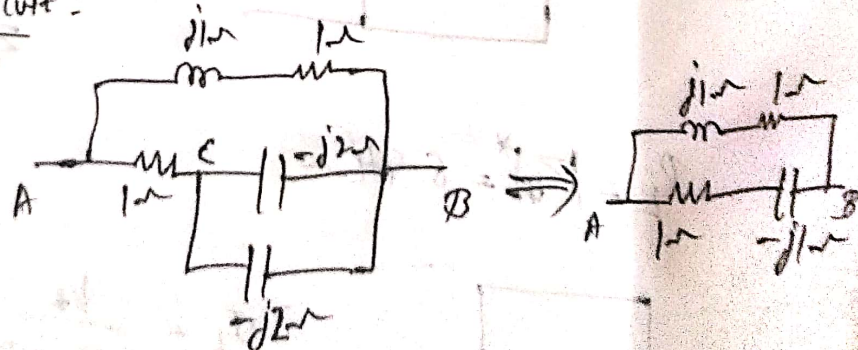 j1Ω 1Ω
A 1Ω C -j2Ω B
-j2Ω
⇒
j1Ω 1Ω
A 1Ω -j1Ω B